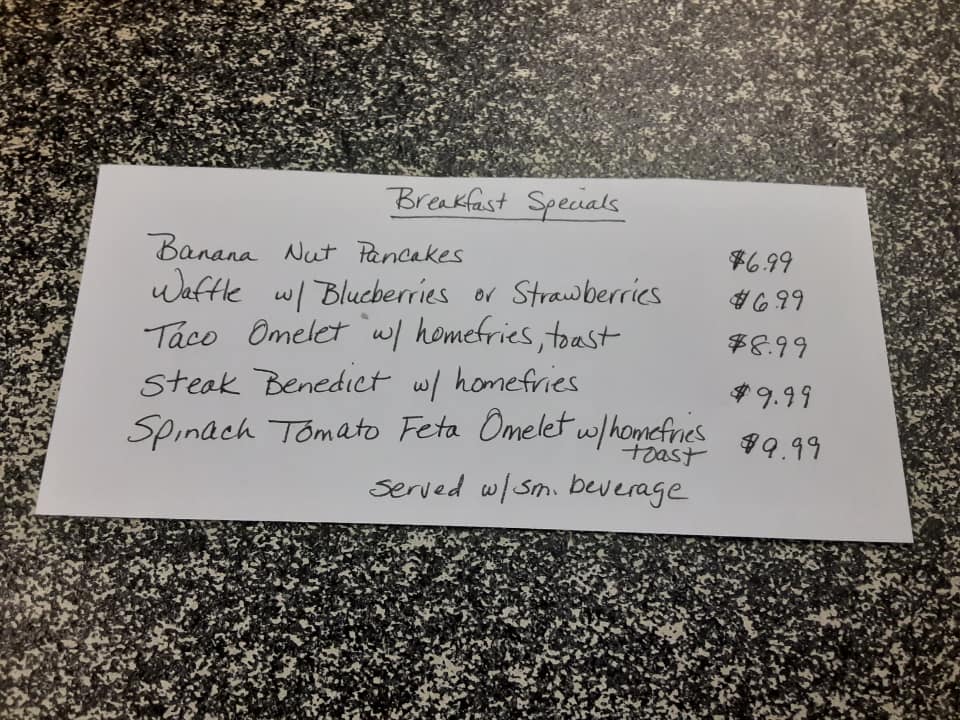 Breakfast Specials
Banana Nut Pancakes $6.99
Waffle w/ Blueberries or Strawberries $6.99
Taco Omelet w/ homefries, toast $8.99
Steak Benedict w/ homefries $9.99
Spinach Tomato Feta Omelet w/homefries $9.99
toast
served w/sm. beverage